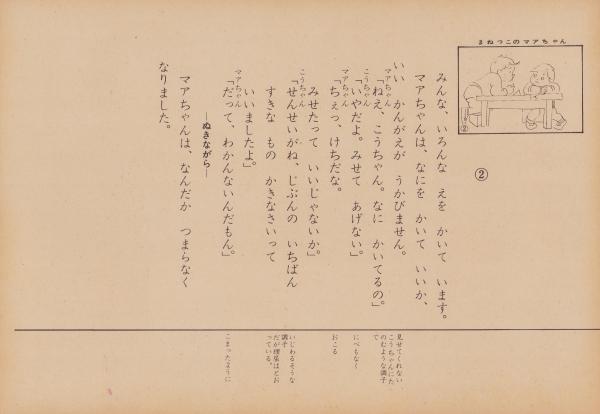 まねっこのマアちゃん
②
②
みんな、いろんな えを かいて います。
マアちゃんは、なにを かいて いいか、
いい かんがえが うかびません。
マアちゃん「ねえ、こうちゃん。なに かいてるの。」
こうちゃん「いやだよ。みせて あげない」。
マアちゃん「ちぇっ、けちだな。
みせたって いいじゃないか」。
こうちゃん「せんせいがね、じぶんの いちばん
すきな もの かきなさいって
いいましたよ」
マアちゃん「だって、わかんないんだもん」。
―ぬきながら―
マアちゃんは、なんだか つまらなく
なりました。
見せてくれない
こうちゃんにた
のむような調子
で
にべもなく
おこる
いじわるそうな
調子
だが理屈はとお
っている。
こまったように